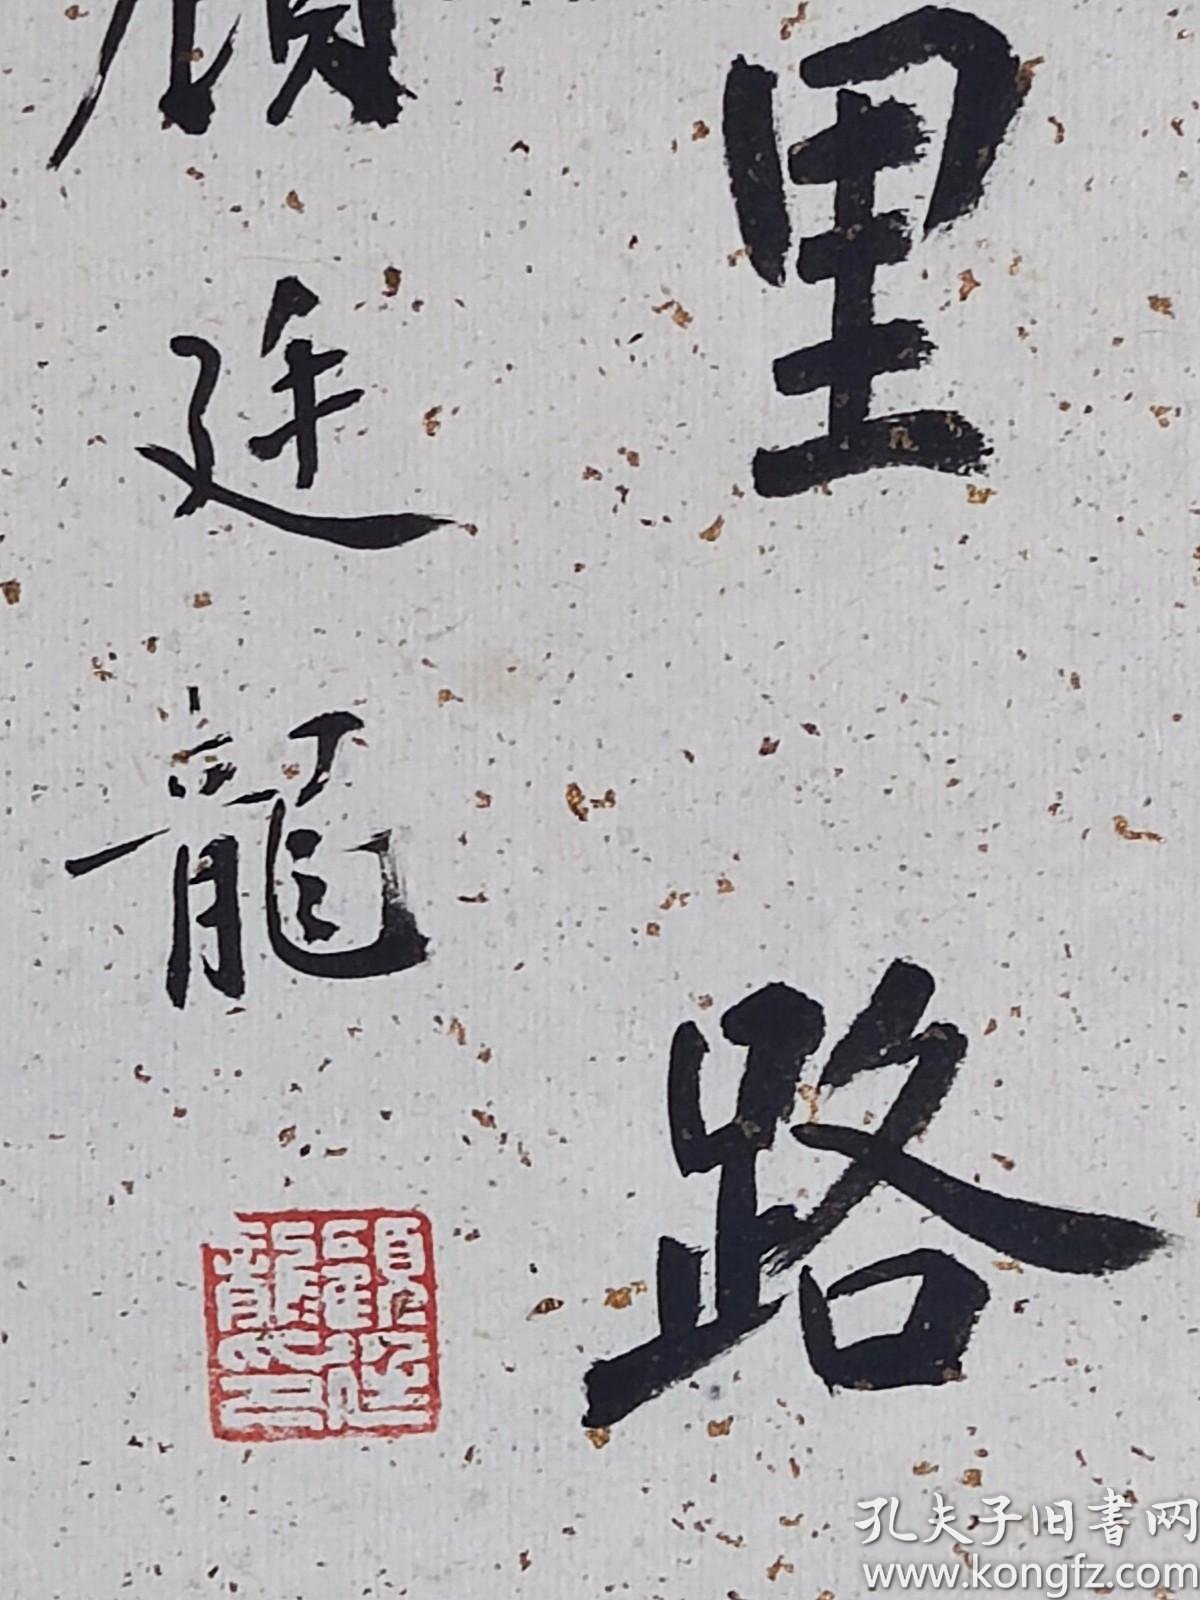 里路
顧廷龍
孔夫子旧書网
www.kongfz.com